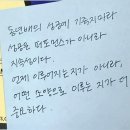 동년배의 성공에 기죽지마라
성공은 퍼포먼스가 아니라
지속성이다.
언제 이루어지는지가 아니라,
어떤 모양으로 이루는 지가 더
중요하다.